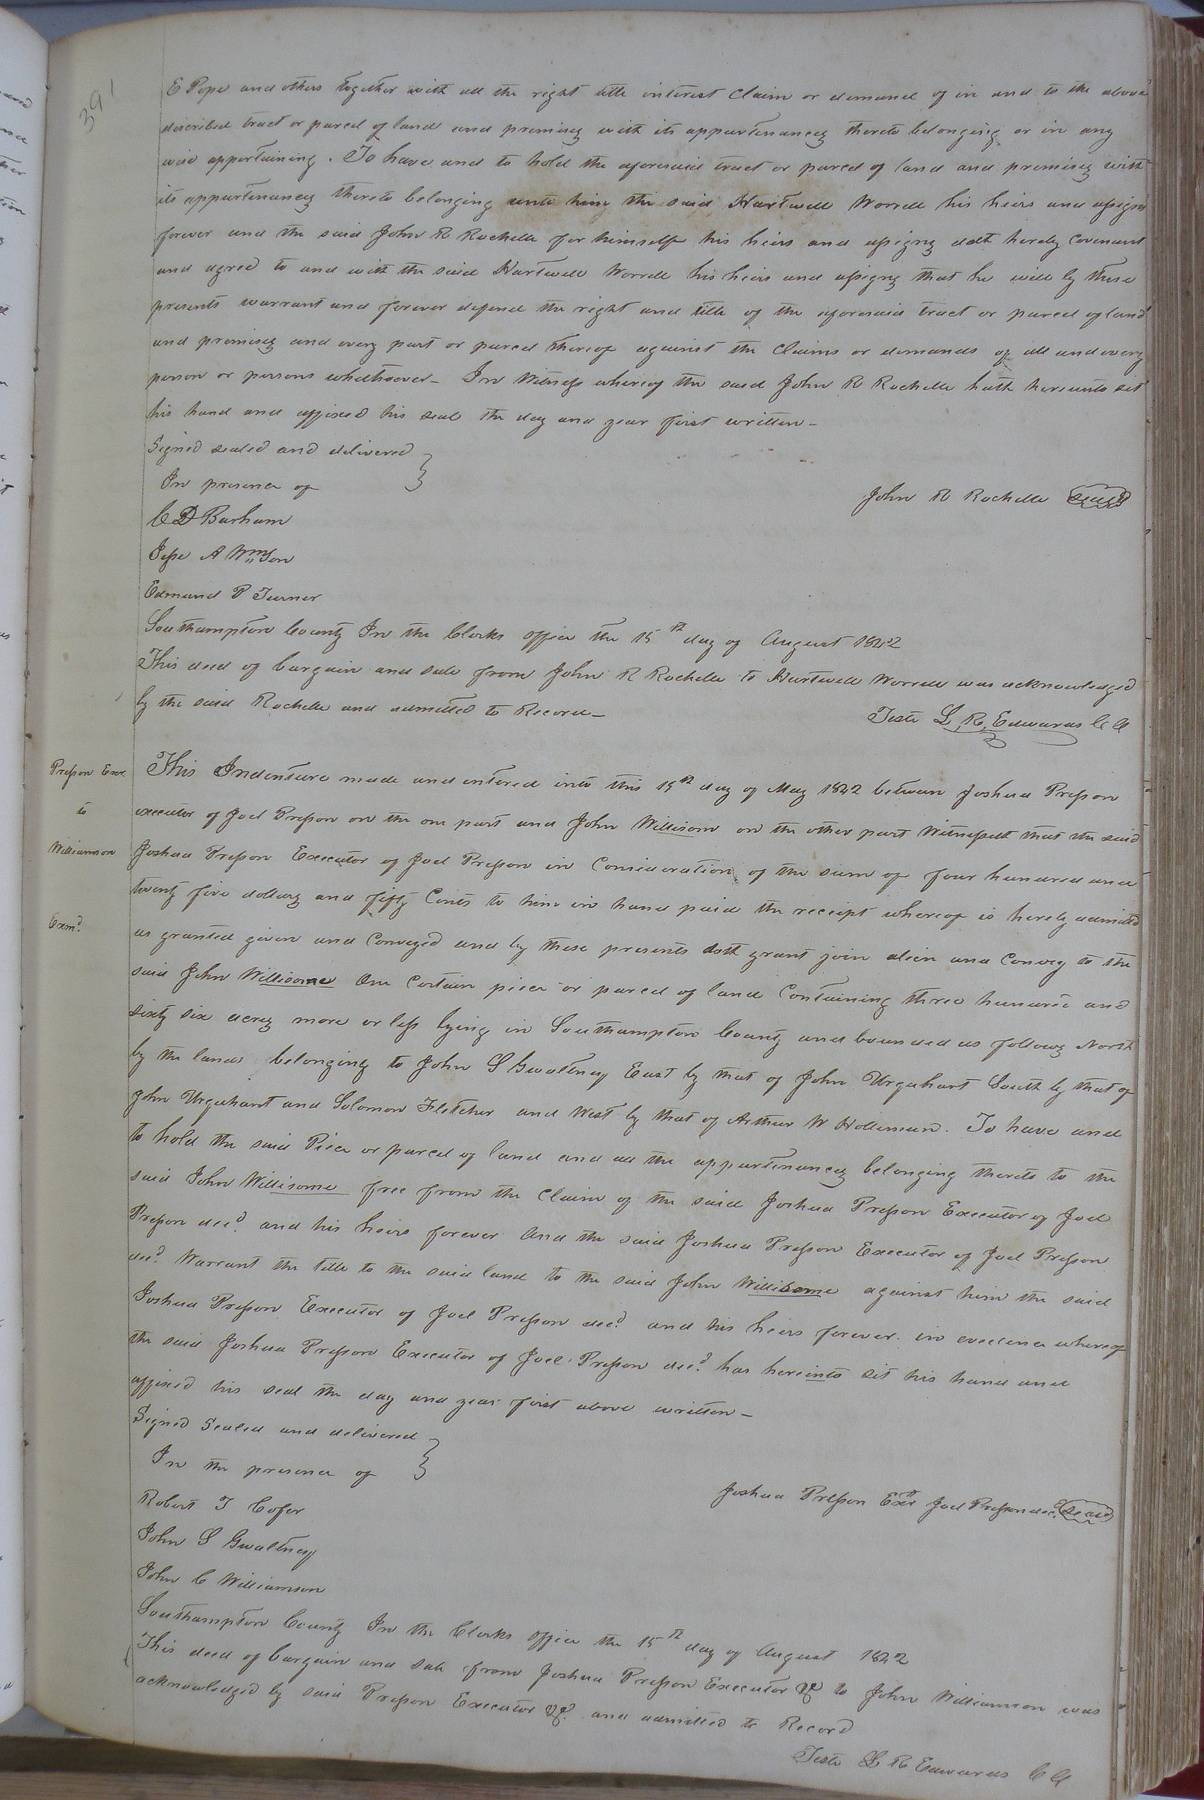 391
E Pope and others together with all the right title interest Claim or demand of in and to the above
described tract or parcel of land and premises with its appurtenances thereto belonging or in any
wise appertaining. To have and to hold the aforesaid tract or parcel of land and premises with
its appurtenances thereto belonging unto him the said Hartwell Worrell his heirs and assigns
forever and the said John R Rochelle for himself his heirs and assigns doth hereby Covenant
and agree to and with the said Hartwell Worrell his heirs and assigns that he will by these
presents warrant and forever defend the right and title of the aforesaid tract or parcel of land
and premises and every part or parcel thereof against the Claims or demands of all and every
person or persons whatsoever – In Witness whereof the said John R Rochelle hath hereunto set
his hand and affixed his seal the day and year first written –
Signed sealed and delivered
In presence of
John R Rochelle Seal
C D Barham
Jesse A Wmson
Edmund P Turner
Southampton County In the Clerks office the 15th day of August 1842
This deed of bargain and sale from John R Rochelle to Hartwell Worrell was acknowledged
by the said Rochelle and admitted to Record –
Teste L. R. Edwards C C
Presson Exr
to
Williamson
Exmd
This Indenture made and entered into this 19th day of May 1842 between Joshua Presson
executor of Joel Presson on the one part and John Willisom on the other part Witnesseth that the said
Joshua Presson Executor of Joel Presson in Consideration of the sum of four hundred and
twenty five dollars and fifty Cents to him in hand paid the receipt whereof is hereby admitted
as granted given and Conveyed and by these presents doth grant join alien and Convey to the
said John Willisome One Certain piece or parcel of land Containing three hundred and
sixty six acres more or less lying in Southampton County and bounded as follows North
by the lands belonging to John S Gwaltney East by that of John Urquhart South by that of
John Urquhart and Solomon Fletcher and West by that of Arthur W Holleman. To have and
to hold the said Piece or parcel of land and all the appurtenances belonging thereto to the
said John Willisome free from the Claim of the said Joshua Presson Executor of Joel
Presson decd. and his heirs forever And the said Joshua Presson Executor of Joel Presson
decd. Warrant the title to the said land to the said John Willisome against him the said
Joshua Presson Executor of Joel Presson decd and his heirs forever. in evedence whereof
the said Joshua Presson Executor of Joel Presson decd. has hereinto set his hand and
affixed his seal the day and year first above written –
Signed Sealed and delivered
In the presence of
Joshua Presson Exr Joel Presson decd Seal
Robert T Cofer
John S Gwaltney
John C Williamson
Southampton County In the Clerks office the 15th day of August 1842
This deed of bargain and sale from Joshua Presson Executor &c to John Williamson was
acknowledged by said Presson Executor &c. and admitted to Record
Teste L R Edwards C C